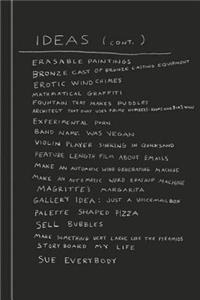 IDEAS (CONT.)
ERASABLE PAINTINGS
BRONZE CAST OF BRONZE CASTING EQUIPMENT
EROTIC WINDCHIMES
MATHEMATICAL GRAFFITI
FOUNTAIN THAT MAKES PUDDLES
ARCHITECT THAT ONLY USES PRIME NUMBERS: ROOMS AND
EXPERIMENTAL PORN
BAND NAME: WAS VEGAN
VIOLIN PLAYER SINKING IN QUICKSAND
FEATURE LENGTH FILM ABOUT EMAILS
MAKE AN AUTOMATIC WINE GENERATING MACHINE
MAKE AN AUTOMATIC WORD ERASING MACHINE
MAGRITTE'S MARGARITA
GALLERY IDEA: JUST A VOICEMAILBOX
PALETTE SHAPED PIZZA
SELL BUBBLES
MAKE SOMETHING VERY LARGE LIKE THE PYRAMIDS
STORYBOARD MY LIFE
SUE EVERYBODY